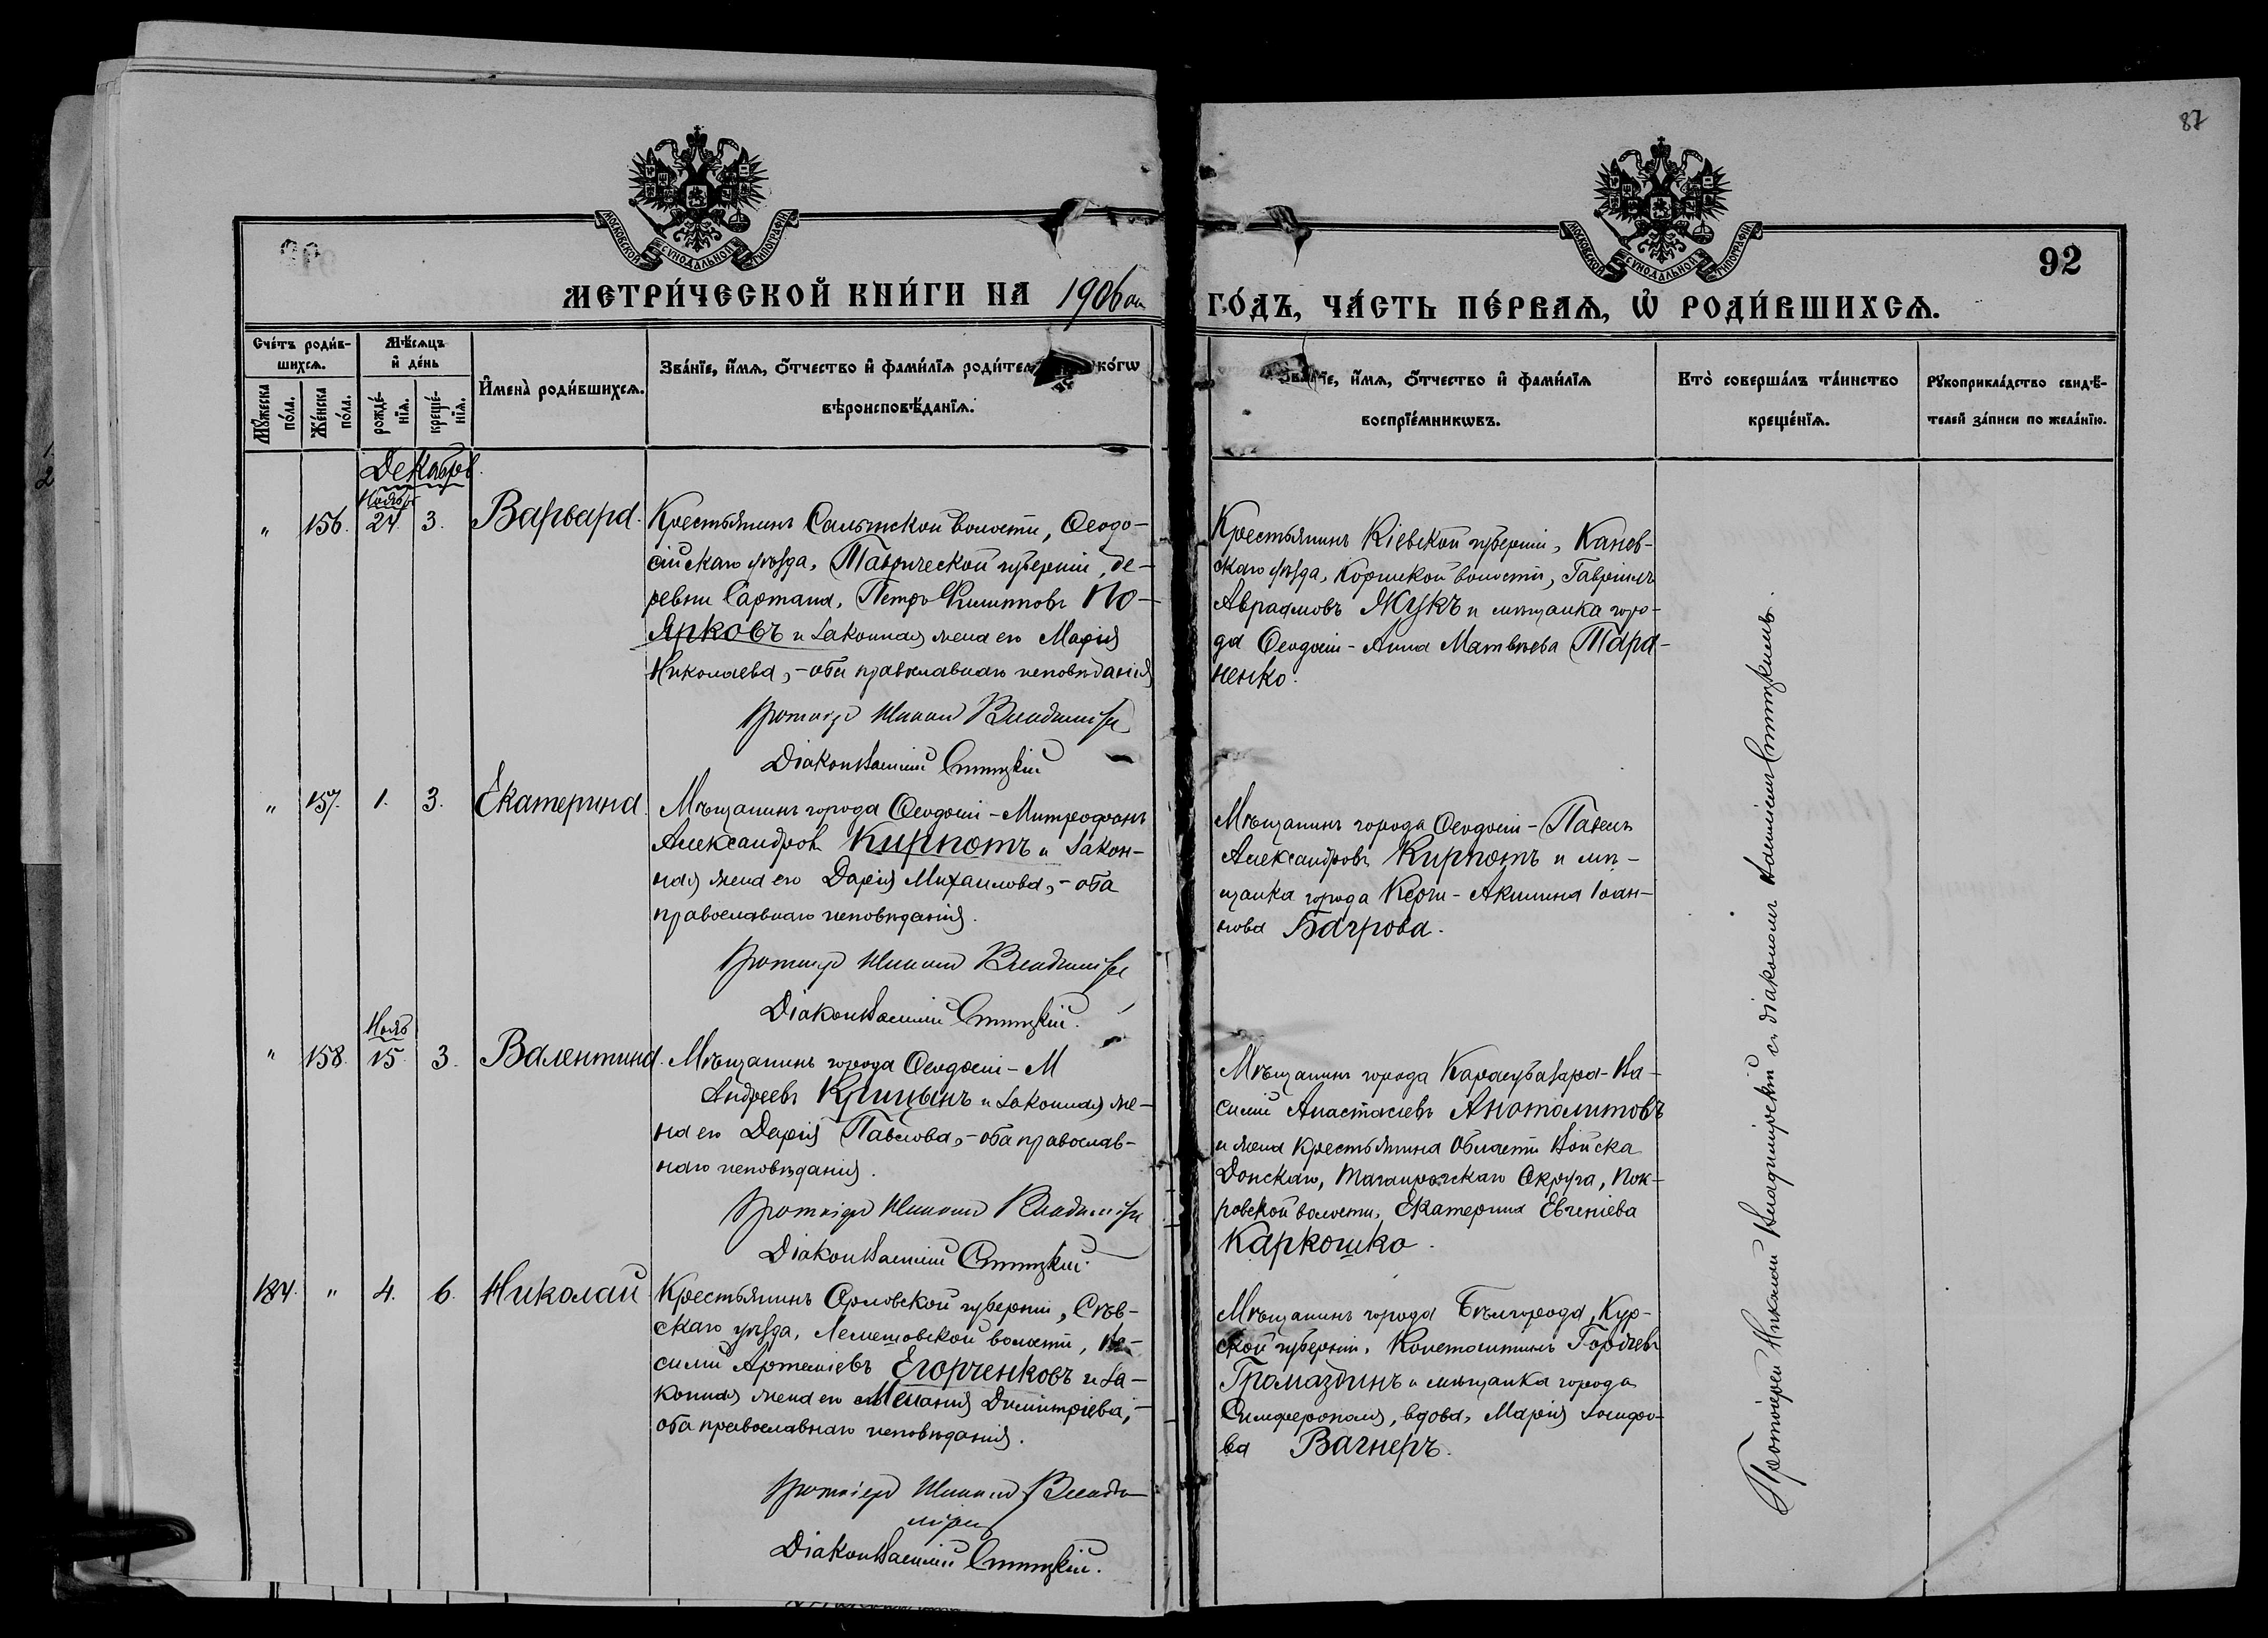 87
МОСКОВСКОЙ СѴНОДАЛЬНОЙ ТИПОГРАФІИ
МОСКОВСКОЙ СѴНОДАЛЬНОЙ ТИПОГРАФІИ
92
МЕТРИ́ЧЕСКОЙ КНИ́ГИ НА 1906 ой
ГО́ДЪ, ЧА́СТЬ ПЕ́РВАѦ, Ѡ҆ РОДИ́ВШИХСѦ.
Сче́тъ роди́в-
шихсѧ.
Мѣ́сѧцъ
и҆ де́нь
Мꙋ́жеска
по́ла.
Же́нска
по́ла.
рожде́-
нїѧ.
креще́-
нїѧ.
И҆мена̀ роди́вшихсѧ.
Зва́нїе, и҆́мѧ, ѻ҆́тчество и҆ фами́лїѧ роди́тел ко́гѡ
вѣроисповѣ́данїѧ.
Зва́нїе, и҆́мѧ, ѻ҆́тчество и҆ фами́лїѧ
воспрїе́мникѡвъ.
Кто̀ соверша́лъ та́инство
креще́нїѧ.
Рꙋкоприкла́дство свидѣ́-
телей за́писи по жела́нїю.
Декабрь.
Нояб.
" 156. 24. 3. Варвара.
Крестьянинъ Салынской волости, Ѳеодо-
сійскаго уѣзда, Таврической губерніи, де-
ревни Сартана, Петръ Филипповъ По-
Ярковъ и законная жена его Марія
Николаева, - оба православнаго исповѣданія
Протоіерей Николай Владимірскій
Діаконъ Василій Ситцкій
Крестьянинъ Кіевской губерніи, Канев-
скаго уѣзда, Корнской волости, Гавріилъ
Авраамовъ Жукъ и мѣщанка горо-
да Ѳеодосіи - Анна Матвѣева Тара-
ненко.
" 157. 1. 3. Екатерина.
Мѣщанинъ города Ѳеодосіи - Митрофанъ
Александровъ Кирпотъ и закон-
ная жена его Дарія Михаилова, - оба
православнаго исповѣданія.
Протоіерей Николай Владимірскій
Діаконъ Василій Ситцкій.
Мѣщанинъ города Ѳеодосіи - Павелъ
Александровъ Кирпотъ и мѣ-
щанка города Керчи - Акилина Іоан-
нова Багрова.
Нояб.
" 158. 15. 3. Валентина.
Мѣщанинъ города Ѳеодосіи - М
Андреевъ Крицынъ и законная же-
на его Дарія Павлова, - оба православ-
наго исповѣданія.
Протоіерей Николай Владимірскій
Діаконъ Василій Ситцкій.
Мѣщанинъ города Карасубазара - Ва-
силій Анастасіевъ Анатолитовъ
и жена крестьянина Области Войска
Донскаго, Таганрогскаго Округа, Пок-
ровской волости, Екатерина Евгеніева
Каркошко.
184. " 4. 6. Николай
Крестьянинъ Орловской губерніи, Сѣв-
скаго уѣзда, Лемешовской волости, Ва-
силій Артеміевъ Егорченковъ и за-
конная жена его Меланія Димитріева, -
оба православнаго исповѣданія.
Протоіерей Николай Влади-
мірскій
Діаконъ Василій Ситцкій.
Мѣщанинъ города Бѣлгорода, Кур-
ской губерніи, Константинъ Гордѣевъ
Громаздинъ и мѣщанка города
Симферополя, вдова, Марія Іосифо-
ва Вагнеръ.
Протоіерей Николай Владимірскій съ діакономъ Василіемъ Ситцкимъ.